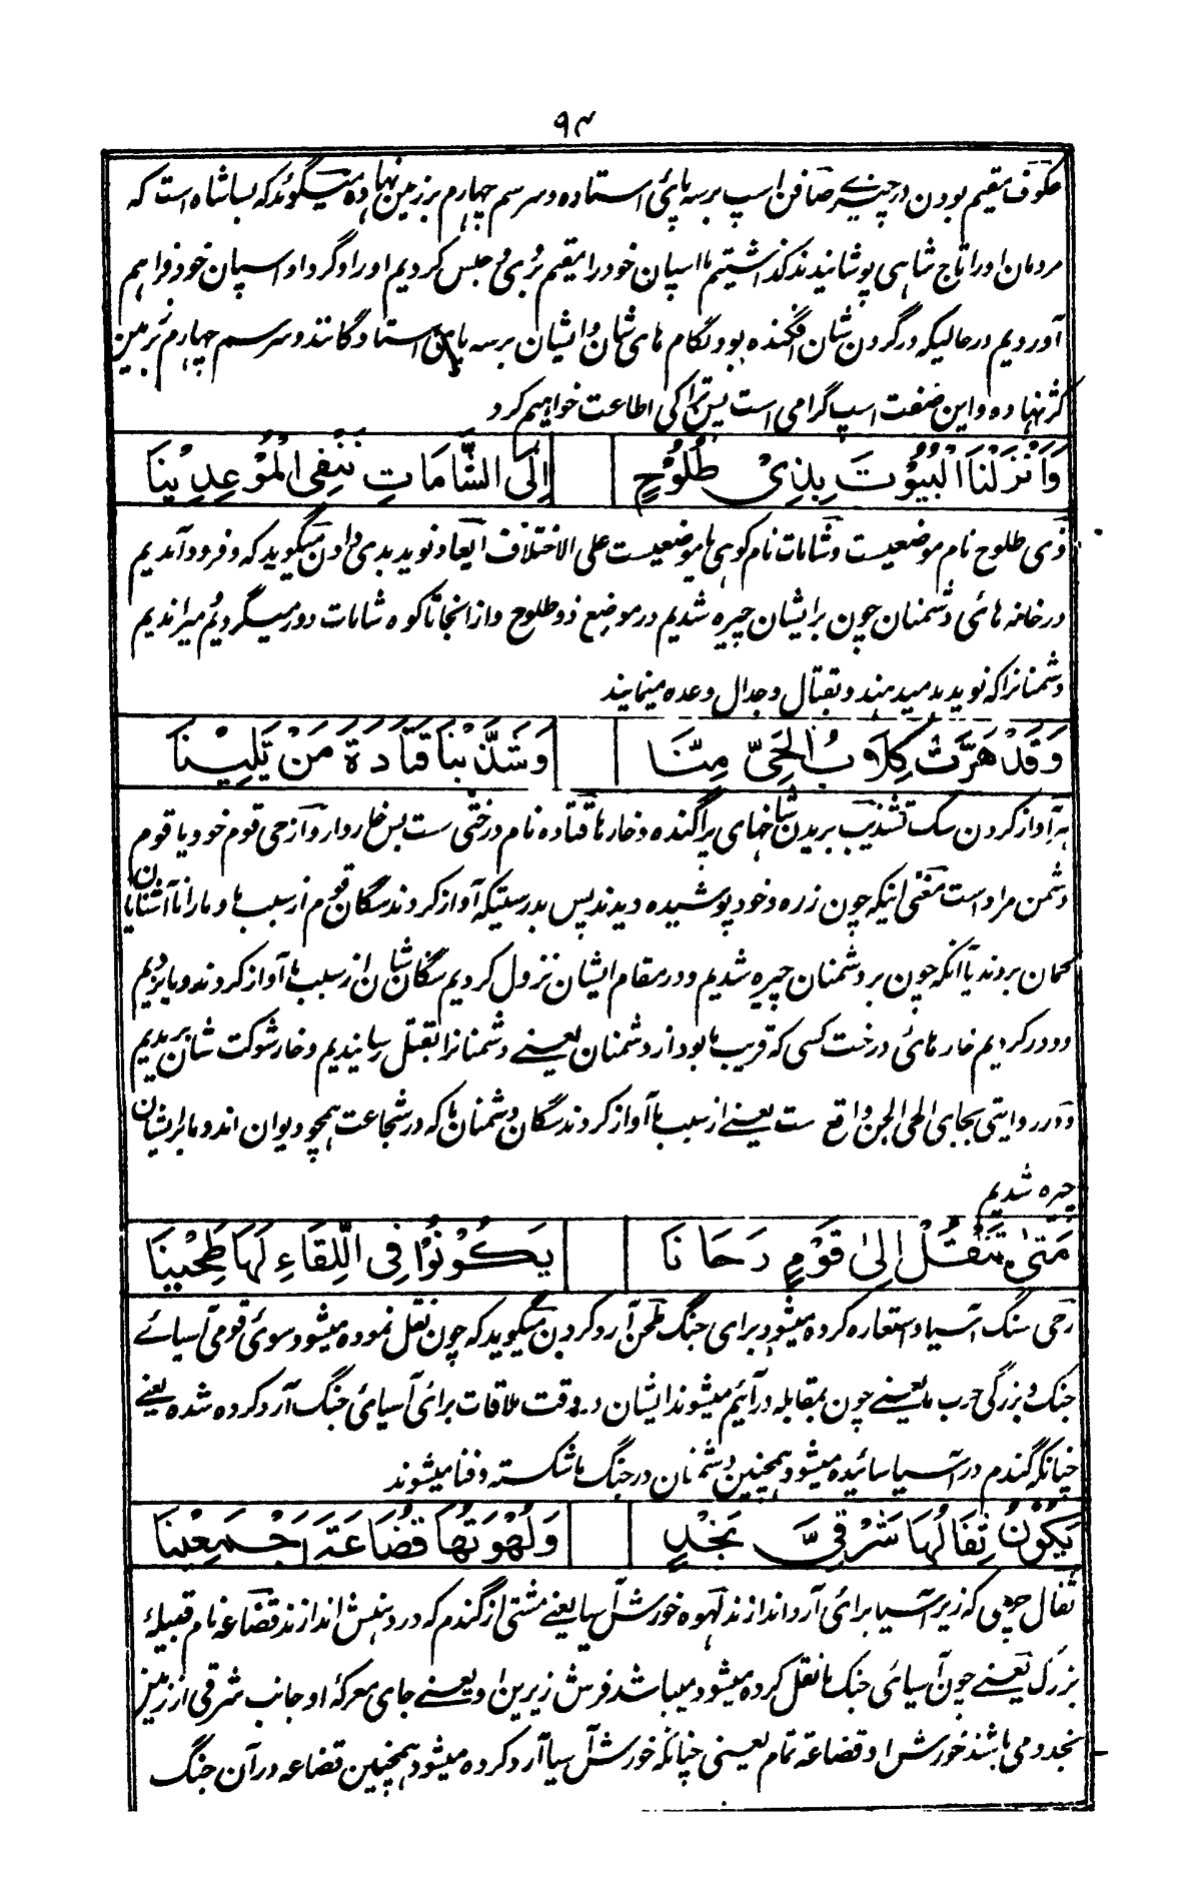 ۹۴
عکوف مقیم بودن در چیزے صافن اسپ برسه پائ استاده و سر سم چهارم بر زمین نهاده میگوئد که بسا شاه است که
مردمان اورا تاج شاهی پوشانیدند گذاشتیم ما اسپان خود را مقیم بر وی و حبس کردیم اورا و گرد او اسپان خود فراهم
آوردیم در حالیکه در گردن شان افگنده بود لگام های شان و ایشان برسه پا استادگانند و سر سم چهارم بر زمین
کژ نهاده و این صفت اسپ گرامی است پس ترا کی اطاعت خواهیم کرد
وَاَنْزَلْنَا الْبُيُوْتَ بِذِىْ طُلُوْحٍ اِلَى الشَّامَاتِ نَنْفِى الْمُوْعِدِيْنَا
ذی طلوح نام موضعیست و شامات نام کوهی یا موضعیست علی الاختلاف ایعاد نوید بدی دادن میگوید که و فرود آمدیم
در خانه هائی دشمنان چون بر ایشان چیره شدیم در موضع ذو طلوح و از انجا تا کوه شامات دور میگردیم میراندیم
دشمنانرا که نوید بد میدهند و بقتال و جدال وعده مینمایند
وَقَدْ هَرَّتْ كِلَابُ الْحَىِّ مِنَّا وَشَذَّبْنَا قَتَادَةَ مَنْ يَلِيْنَا
هر آواز کردن سگ تشذیب بریدن شاخهای پراگنده و خارها قتاده نام درختی ست بس خاردار و از حی قوم خود یا قوم
دشمن مراد است معنی اینکه چون زره و خود پوشیده دیدند پس بدرستیکه آواز کردند سگان قوم از سبب ما و مارا نا آشنایان
گمان بردند یا آنکه چون بر دشمنان چیره شدیم و در مقام ایشان نزول کردیم سگان شان از سبب ما آواز کردند و بابریدیم
و دور کردیم خار هائی درخت کسی که قریب ما بود از دشمنان یعنے دشمنانرا بقتل رسانیدیم و خار شوکت شان بریدیم
و در روایتی بجای الحی الجن واقع ست یعنے از سبب ما آواز کردند سگان دشمنان ما که در شجاعت همچو دیوان اند و ما بر ایشان
چیره شدیم
مَتٰى نَنْقُلْ اِلىٰ قَوْمٍ رَحَانَا يَكُوْنُوْا فِى اللِّقَاءِ لَهَا طَحِيْنَا
رحی سنگ آسیا و استعاره کرده میشود برای جنگ طحن آرد کردن میگوید که چون نقل نموده میشود سوئ قومی آسیائے
جنگ و بزرگی حرب ما یعنے چون بمقابله در آئیم میشوند ایشان در وقت ملاقات برائ آسیائ جنگ آرد کرده شده یعنے
چنانکه گندم در آسیا سائیده میشود همچنین دشمنان در جنگ ما شکسته و فنا میشوند
يَكُوْنُ ثِفَالُهَا شَرْقِىَّ نَجْدٍ وَلُهْوَتُهَا قُضَاعَةَ اَجْمَعِيْنَا
ثفال چرمی که زیر آسیا برائ آرد اندازند لهوه خورش آسیا یعنے مشتی از گندم که در دهنش اندازند قضاعه نام قبیلهٔ
بزرگ یعنے چون آسیائی جنگ ما نقل کرده میشود میباشد فرش زیرین او یعنے جای معرکهٔ او جانب شرقی از زمین
نجد و می باشد خورش او قضاعه تمام یعنی چنانکه خورش آسیا آرد کرده میشود همچنین قضاعه در آن جنگ